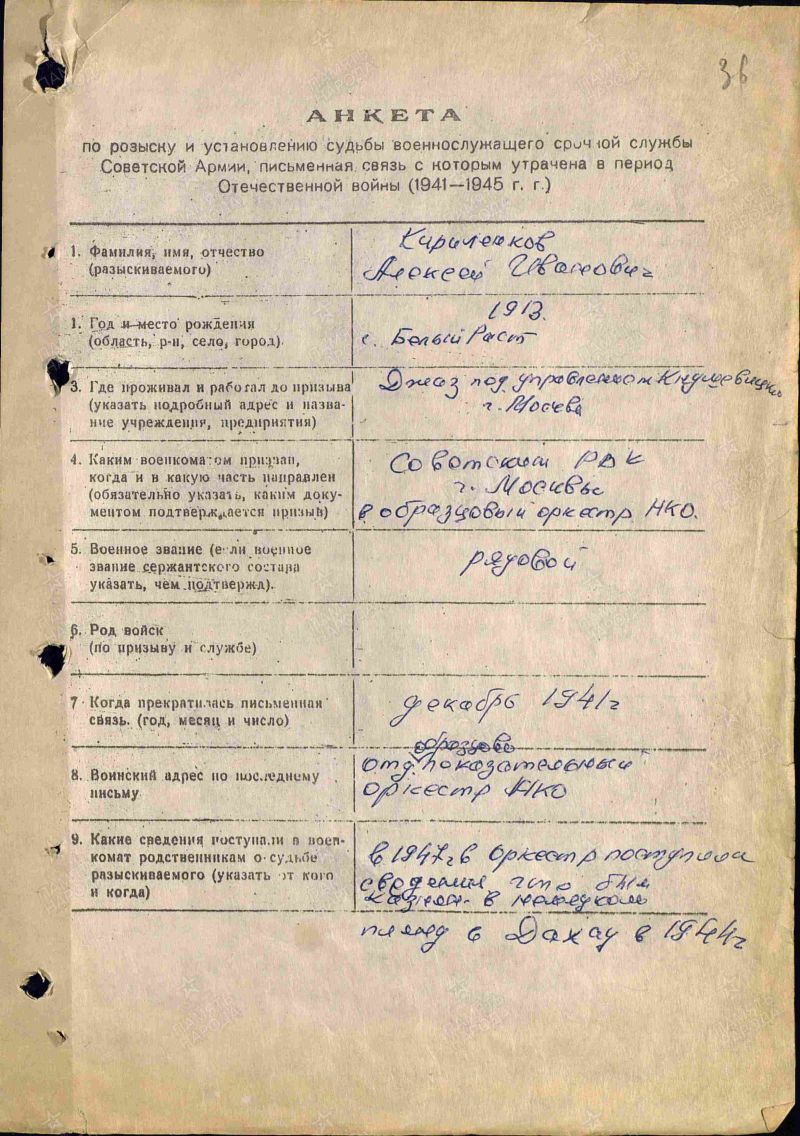 36
АНКЕТА
по розыску и установлению судьбы военнослужащего срочной службы
Советской Армии, письменная связь с которым утрачена в период
Отечественной войны (1941—1945 г. г.)
1. Фамилия, имя, отчество
(разыскиваемого)
Кириленков
Алексей Иванович
1. Год и место рождения
(область, р-н, село, город).
1913.
с. Белый Раст
3. Где проживал и работал до призыва
(указать подробный адрес и назва-
ние учреждения, предприятия)
Джаз под управлением Кнушевицко
г. Москва
4. Каким военкоматом призван,
когда и в какую часть направлен
(обязательно указать, каким доку-
ментом подтверждается призыв)
Советским РВК
г. Москвы
в образцовый оркестр НКО.
5. Военное звание (если военное
звание сержантского состава
указать, чем подтвержд).
рядовой
6. Род войск
(по призыву и службе)
7 Когда прекратилась письменная
связь. (год, месяц и число)
декабрь 1941г
8. Воинский адрес по последнему
письму
образцово
отд. показательный
оркестр НКО
9. Какие сведения поступали в воен-
комат родственникам о судьбе
разыскиваемого (указать от кого
и когда)
в 1947г в оркестр поступили
сведения что был
казнен в немецком
плену в Дахау в 1944г